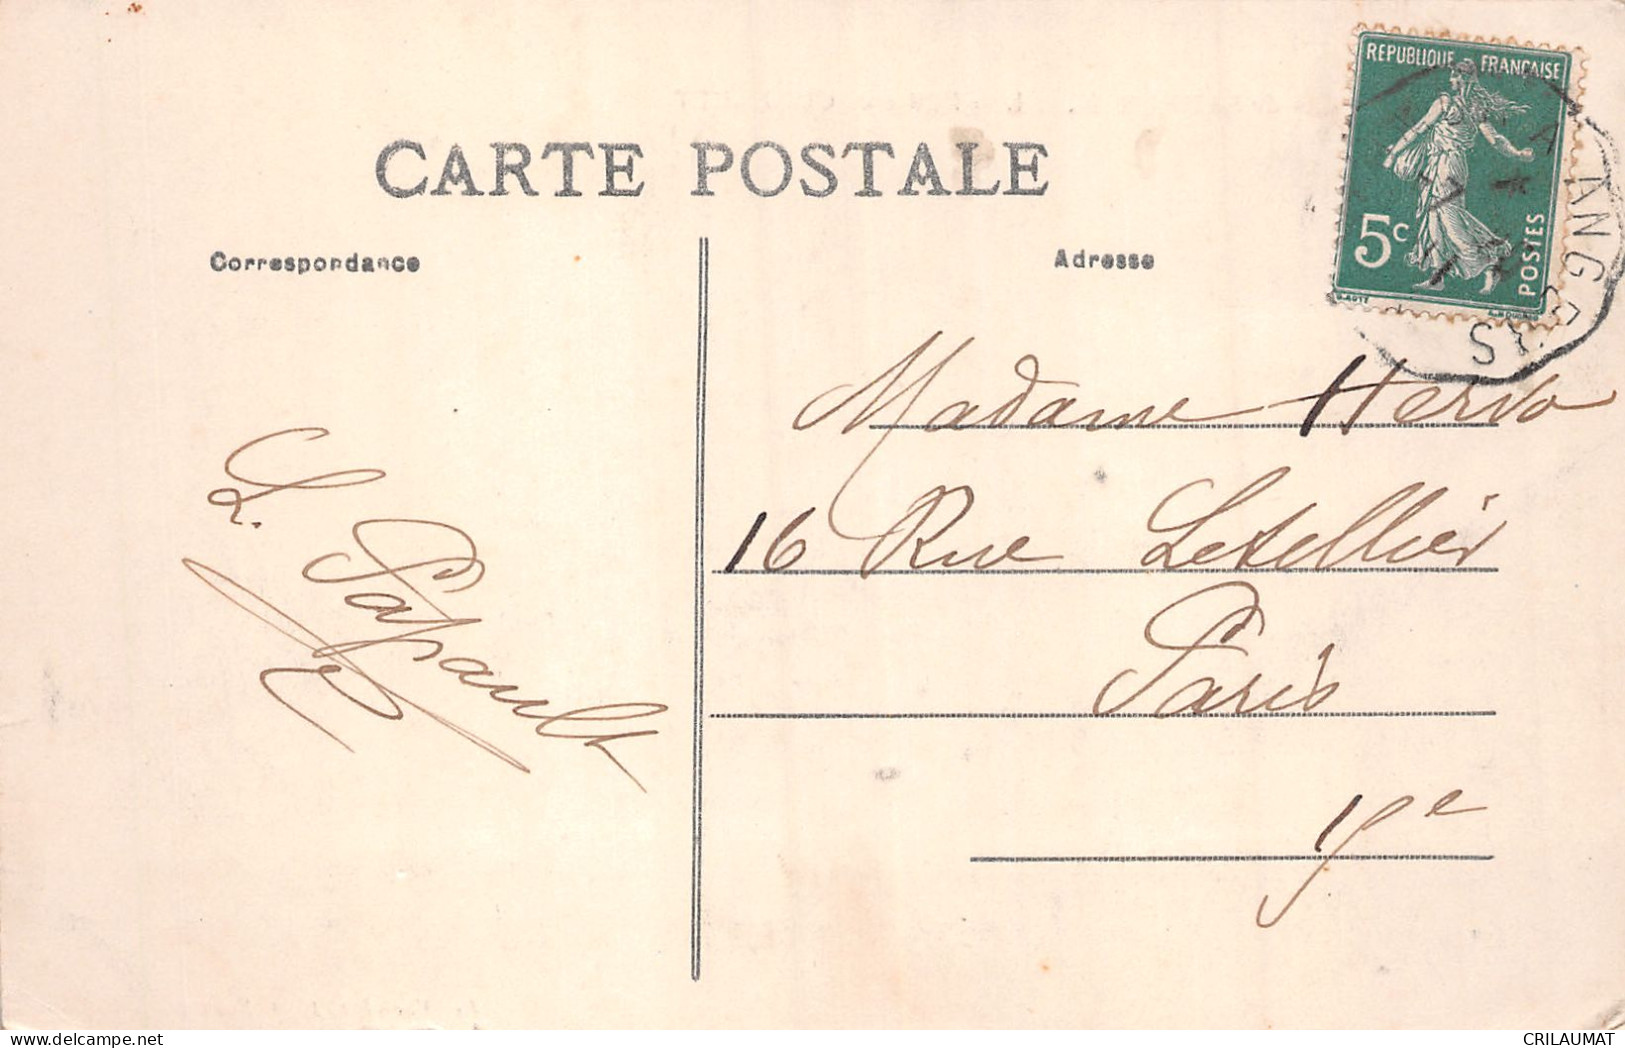 REPUBLIQUE FRANÇAISE
5c
POSTES
CARTE POSTALE
Correspondance
Adresse
Madame Hervo
16 Rue Letellier
Paris
15e
L. Papault
CRILAUMAT